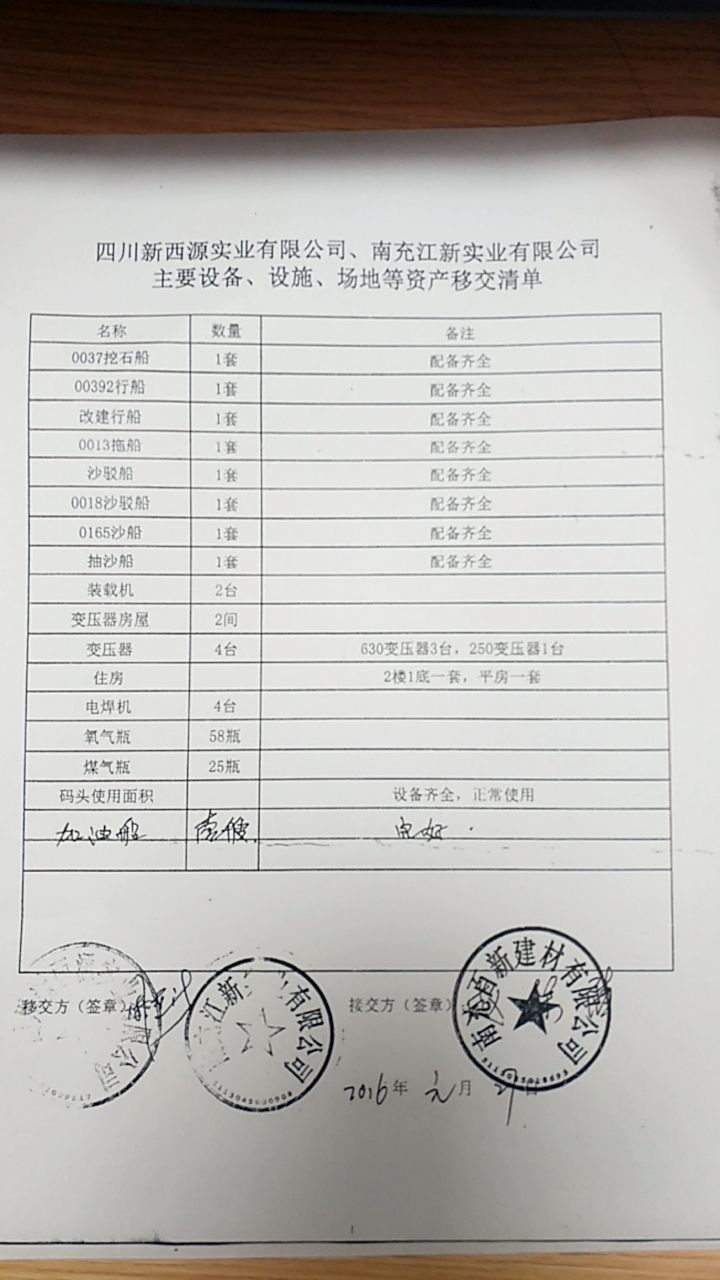 四川新西源实业有限公司、南充江新实业有限公司
主要设备、设施、场地等资产移交清单
名称 数量 备注
0037挖石船 1套 配备齐全
00392行船 1套 配备齐全
改建行船 1套 配备齐全
0013拖船 1套 配备齐全
沙驳船 1套 配备齐全
0018沙驳船 1套 配备齐全
0165沙船 1套 配备齐全
抽沙船 1套 配备齐全
装载机 2台
变压器房屋 2间
变压器 4台 630变压器3台，250变压器1台
住房 2楼1底一套，平房一套
电焊机 4台
氧气瓶 58瓶
煤气瓶 25瓶
码头使用面积 设备齐全，正常使用
加油船 壹艘. 完好.
移交方（签章） 接交方（签章）
江新 有限公司
南充百新建材有限公司
有限公司
2016年 元月 日
1